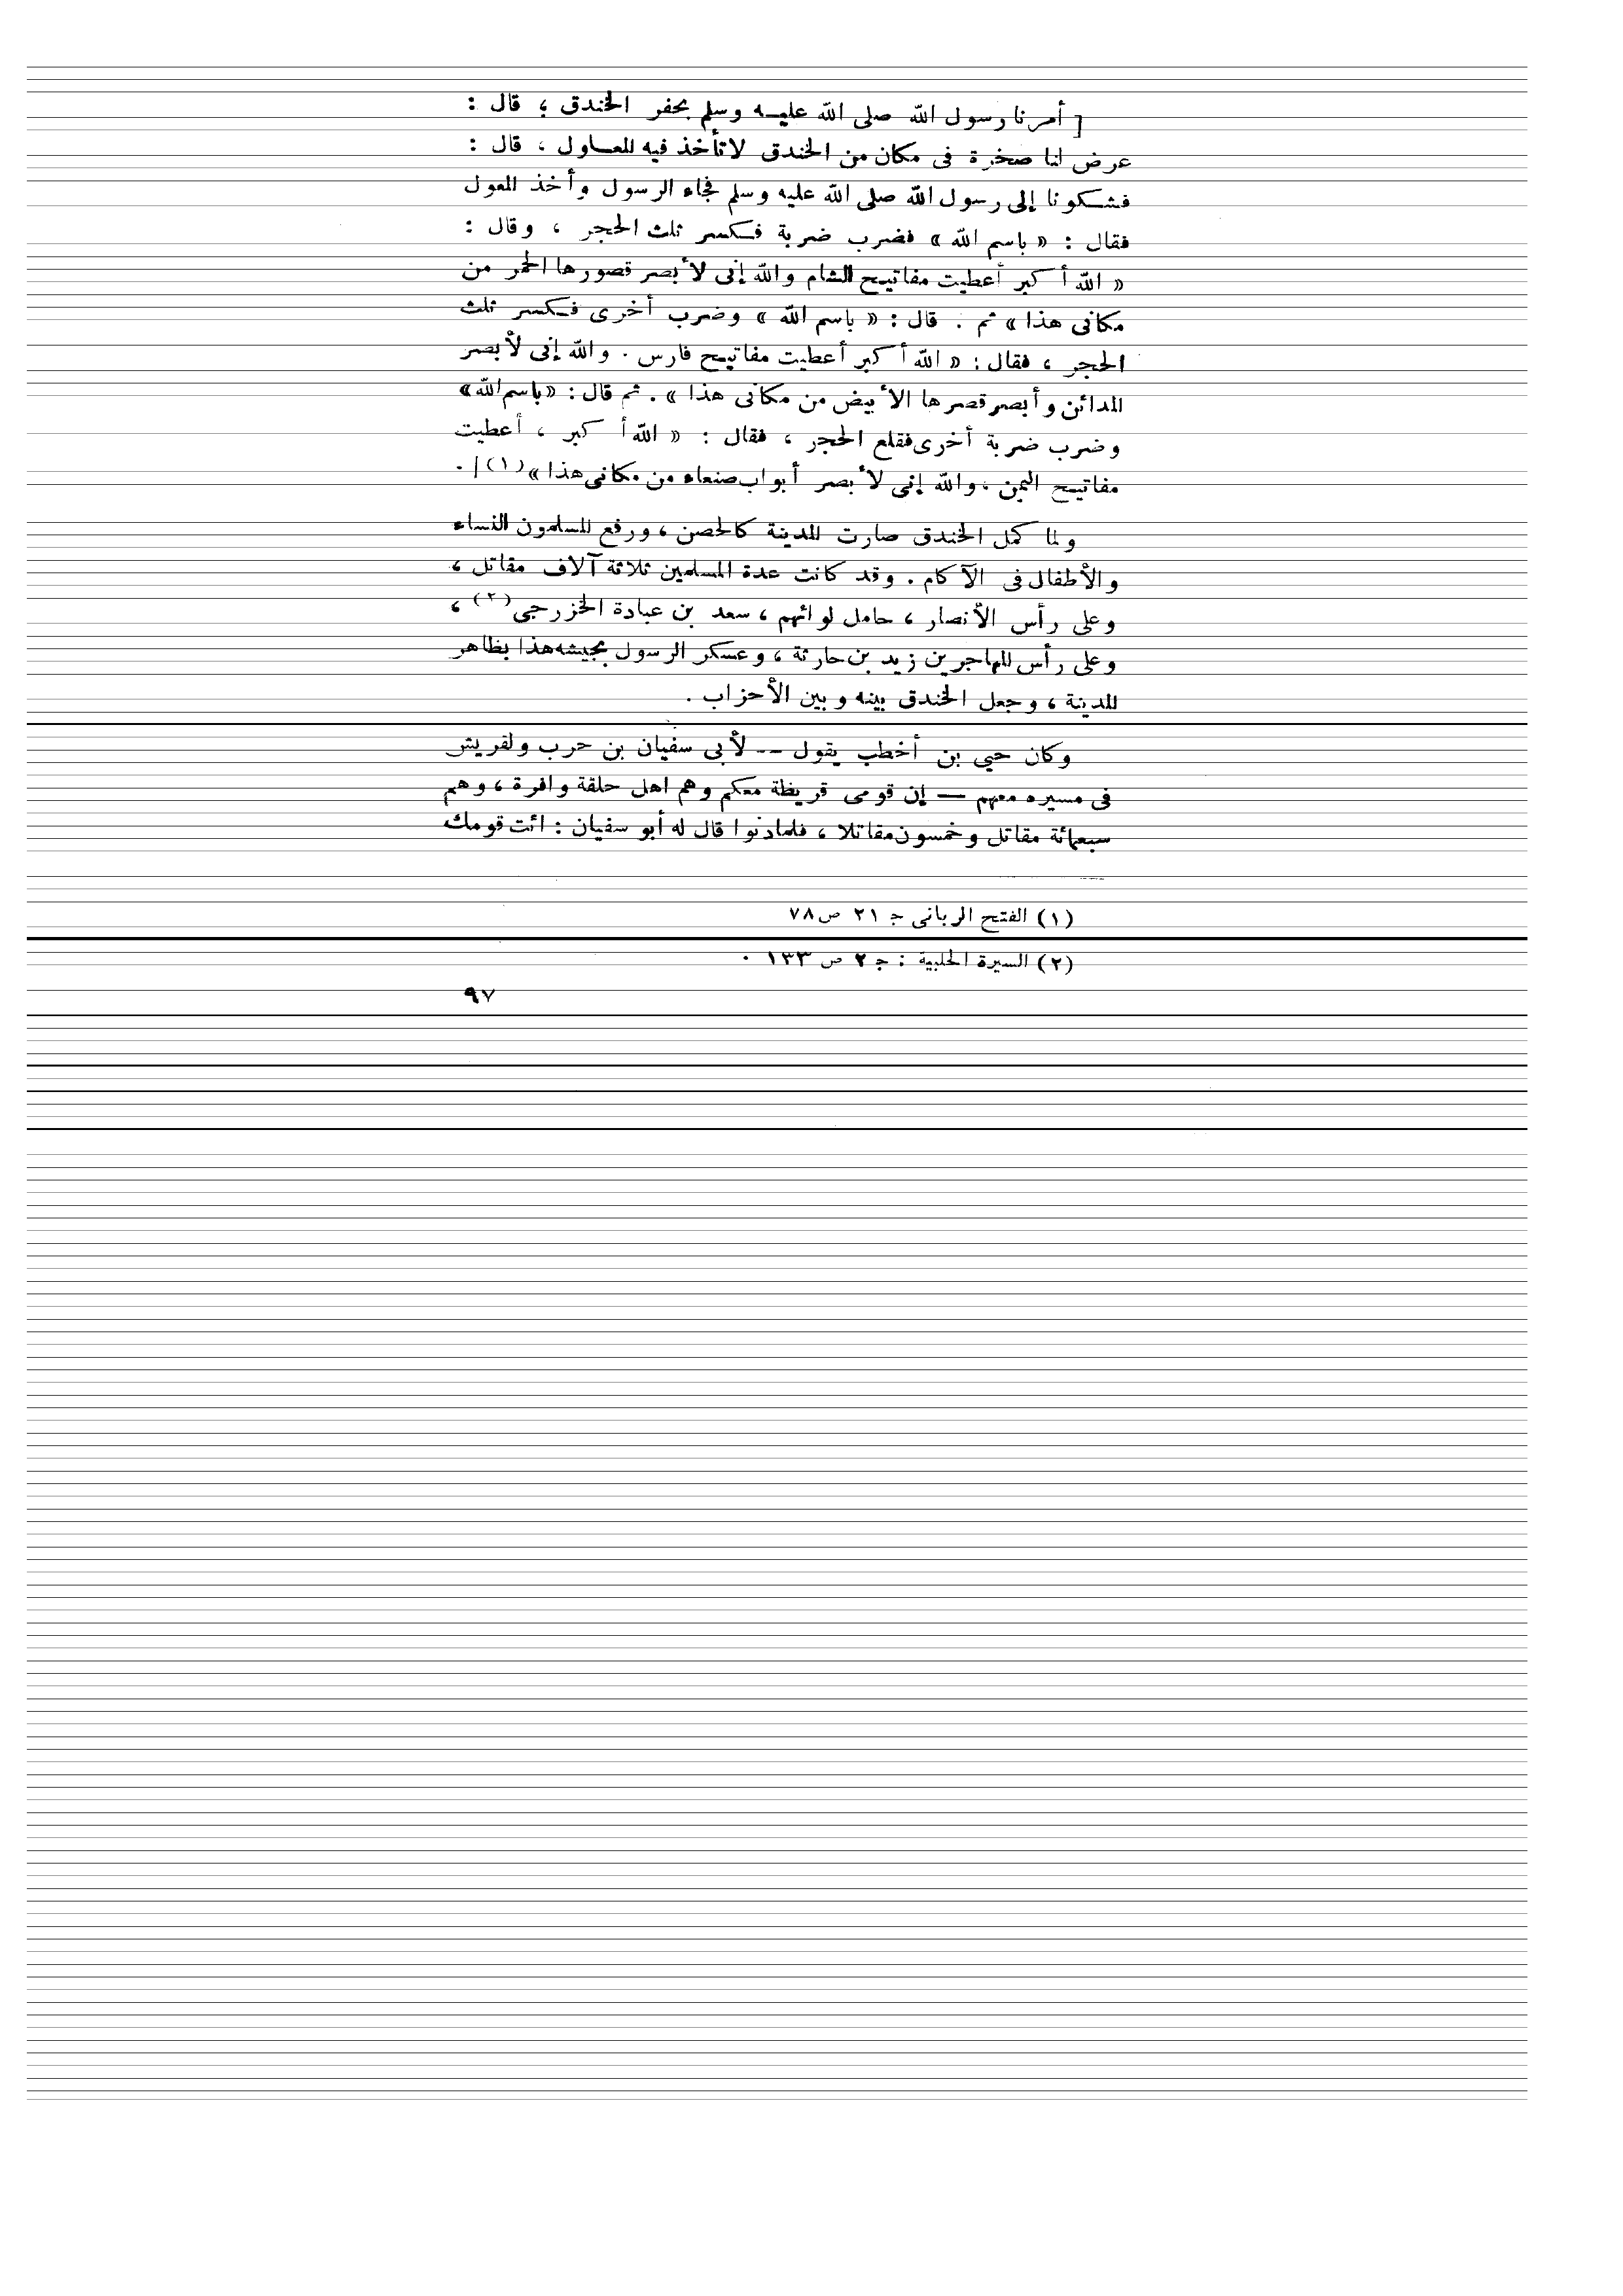 [ أمرنا رسول الله صلى الله عليه وسلم بحفر الخندق ؛ قال :
عرض لنا صخرة فى مكان من الخندق لا تأخذ فيه المعاول ، قال :
فشكونا إلى رسول الله صلى الله عليه وسلم فجاء الرسول وأخذ المعول
فقال : « باسم الله » فضرب ضربة فكسر ثلث الحجر ، وقال :
« الله أكبر أعطيت مفاتيح الشام والله إنى لأبصر قصورها الحمر من
مكانى هذا » ثم . قال : « باسم الله » وضرب أخرى فكسر ثلث
الحجر ، فقال : « الله أكبر أعطيت مفاتيح فارس . والله إنى لأبصر
المدائن وأبصر قصرها الأبيض من مكانى هذا » . ثم قال : « باسم الله »
وضرب ضربة أخرى فقلع الحجر ، فقال : « الله أكبر ، أعطيت
مفاتيح اليمن ، والله إنى لأبصر أبواب صنعاء من مكانى هذا » (١) ] .
ولما كمل الخندق صارت المدينة كالحصن ، ورفع المسلمون النساء
والأطفال فى الآكام . وقد كانت عدة المسلمين ثلاثة آلاف مقاتل ،
وعلى رأس الأنصار ، حامل لوائهم ، سعد بن عبادة الخزرجى (٢) ،
وعلى رأس المهاجرين زيد بن حارثة ، وعسكر الرسول بجيشه هذا بظاهر
المدينة ، وجعل الخندق بينه وبين الأحزاب .
وكان حيي بن أخطب يقول -- لأبى سفيان بن حرب ولقريش
فى مسيره معهم — إن قومى قريظة معكم وهم اهل حلقة وافرة ، وهم
سبعمائة مقاتل وخمسون مقاتلا ، فلما دنوا قال له أبو سفيان : ائت قومك
(١) الفتح الربانى ج ٢١ ص ٧٨
(٢) السيرة الحلبية : ج ٢ ص ١٣٣ .
٩٧